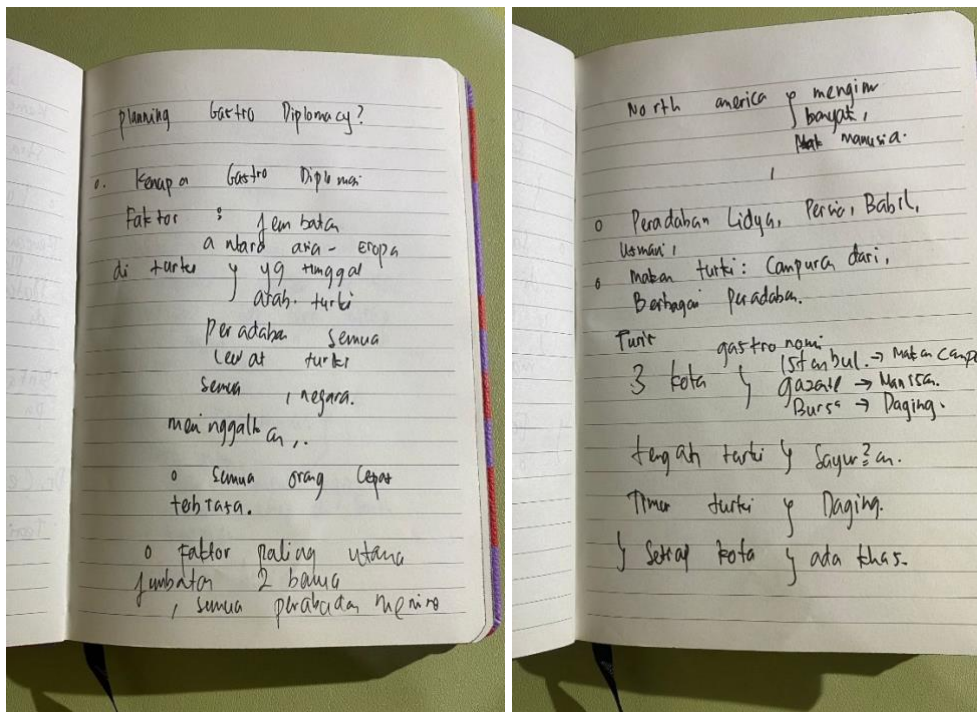 planning Gastro Diplomacy?
o. Kenapa Gastro Diplomasi
Faktor : Jembatan
antara asia - eropa
di turki yg tinggal
arab. turki
Peradaban semua
lewat turki
Semua , negara.
meninggalkan ,.
o Semua orang cepat
terbiasa.
o Faktor paling utama
Jembatan 2 benua
, semua
North america
banyak,
manusia.
o Peradaban Lidya, Persia, Babil,
Usmani,
o makan turki : Campuran dari,
Berbagai Peradaban.
gastronomi
3 kota Istanbul. → Makan
→ Manisan.
Bursa → Daging.
tengah turki Sayur2an.
Timur turki Daging.
Setiap kota ada khas.